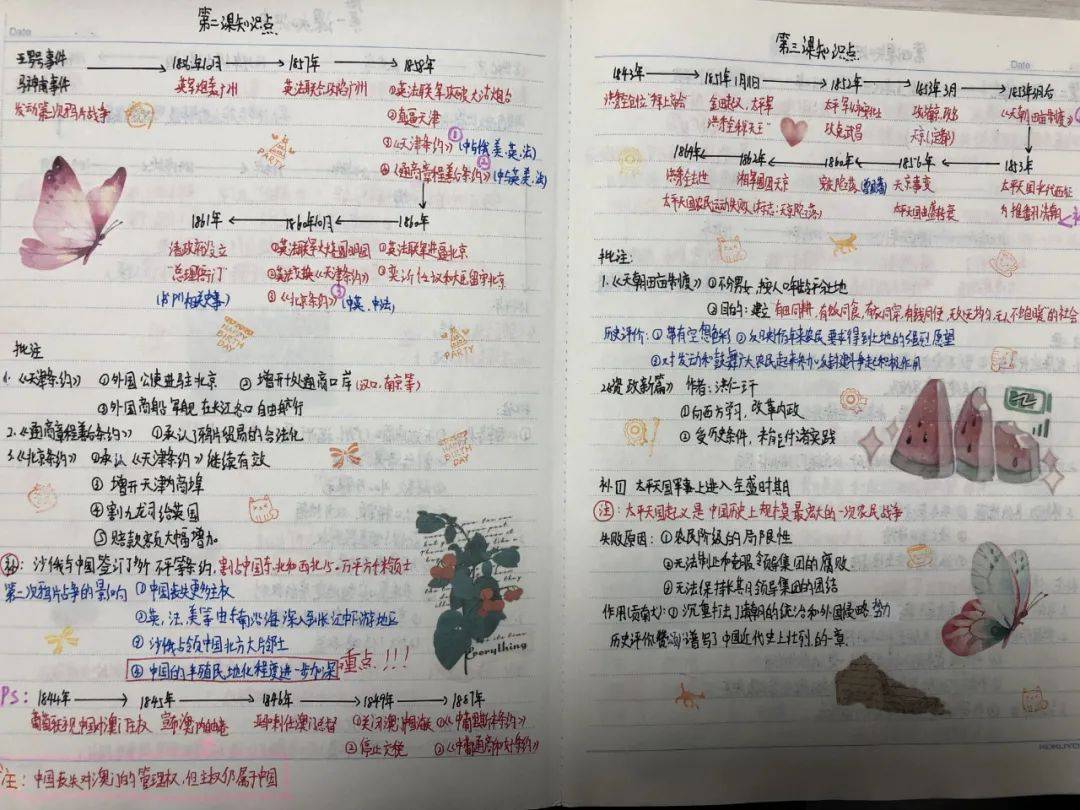 第二课知识点
Date
亚罗号事件
马神甫事件
发动第二次鸦片战争
1856年10月
英军炮轰广州
1857年
英法联合攻陷广州
1858年
①英法联军攻破大沽炮台
②直逼天津
③《天津条约》(中与俄、美、英、法)
④《通商章程善后条约》(中与英、美、法)
1861年
1860年10月
1860年
清政府设立
总理衙门
(书P11相关史事)
①英法联军火烧圆明园
②英法互换《天津条约》
③《北京条约》(中英、中法)
①英法联军进逼北京
批注
1.《天津条约》 ①外国公使进驻北京 ②增开十处通商口岸(汉口、南京等)
③外国商船军舰在长江各口自由航行
2.《通商章程善后条约》 ①承认了鸦片贸易的合法化
3.《北京条约》 ①承认《天津条约》继续有效
②增开天津为商埠
④割九龙司给英国
⑤赔款数额大幅增加
沙俄与中国签订了 不平等条约,割占中国东北和西北150万平方千米领土
第二次鸦片战争的影响 ①中国丧失更多主权
②英、法、美等由东南沿海深入到长江中下游地区
③沙俄占领中国北方大片领土
④中国的半殖民地化程度进一步加深 重点!!!
Ps: 1844年 1845年 1846年 1849年 1887年
葡萄牙 中国对澳门主权
亚马利任澳门总督
②停止交税
①《中葡里斯本条约》
②《中葡通商和好条约》
注: 中国丧失对澳门的管理权,但主权仍属于中国
everything
第三课知识点
Date
1843年 1851年1月11日 1852年 1853年3月
洪秀全创立"拜上帝会"
金田起义,太平军
洪秀全称"天王"
攻克武昌
攻占南京,改名
天京(定都)
《天朝田亩制度》
1864年 1862年 1860年 1856年 1853年
洪秀全去世
湘军围困天京
安庆陷落
天京事变
太平天国农民运动失败(标志:天京陷落)
太平天国由盛转衰
太平天国北伐西征
为推翻清朝
批注:
1.《天朝田亩制度》①不分男女,按人口年龄平分土地
②目的:建立"有田同耕,有饭同食,有衣同穿,有钱同使,无处不均匀,无人不饱暖"的社会
历史评价:①带有空想色彩 ②反映几千年来农民要求得到土地的强烈愿望
③对发动和鼓舞广大农民起来参加反封建斗争起了积极作用
2.《资政新篇》 作者:洪仁玕
①向西方学习,改革内政
②受历史条件,未能付诸实践
补 太平天国军事上进入全盛时期
注:太平天国起义是中国历史上规模最宏大的一次农民战争
失败原因:①农民阶级的局限性
②无法制止和克服领导集团的腐败
③无法保持长期领导集团的团结
作用(贡献大):①沉重打击了清朝的统治和外国侵略势力
历史评价 谱写了中国近代史上壮烈的一章.